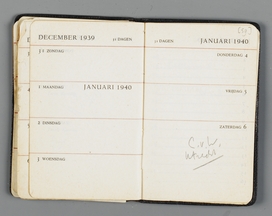 DECEMBER 1939 31 DAGEN
31 ZONDAG
1 MAANDAG JANUARI 1940
2 DINSDAG
3 WOENSDAG
31 DAGEN JANUARI 1940
DONDERDAG 4
VRIJDAG 5
ZATERDAG 6
C.v.W.